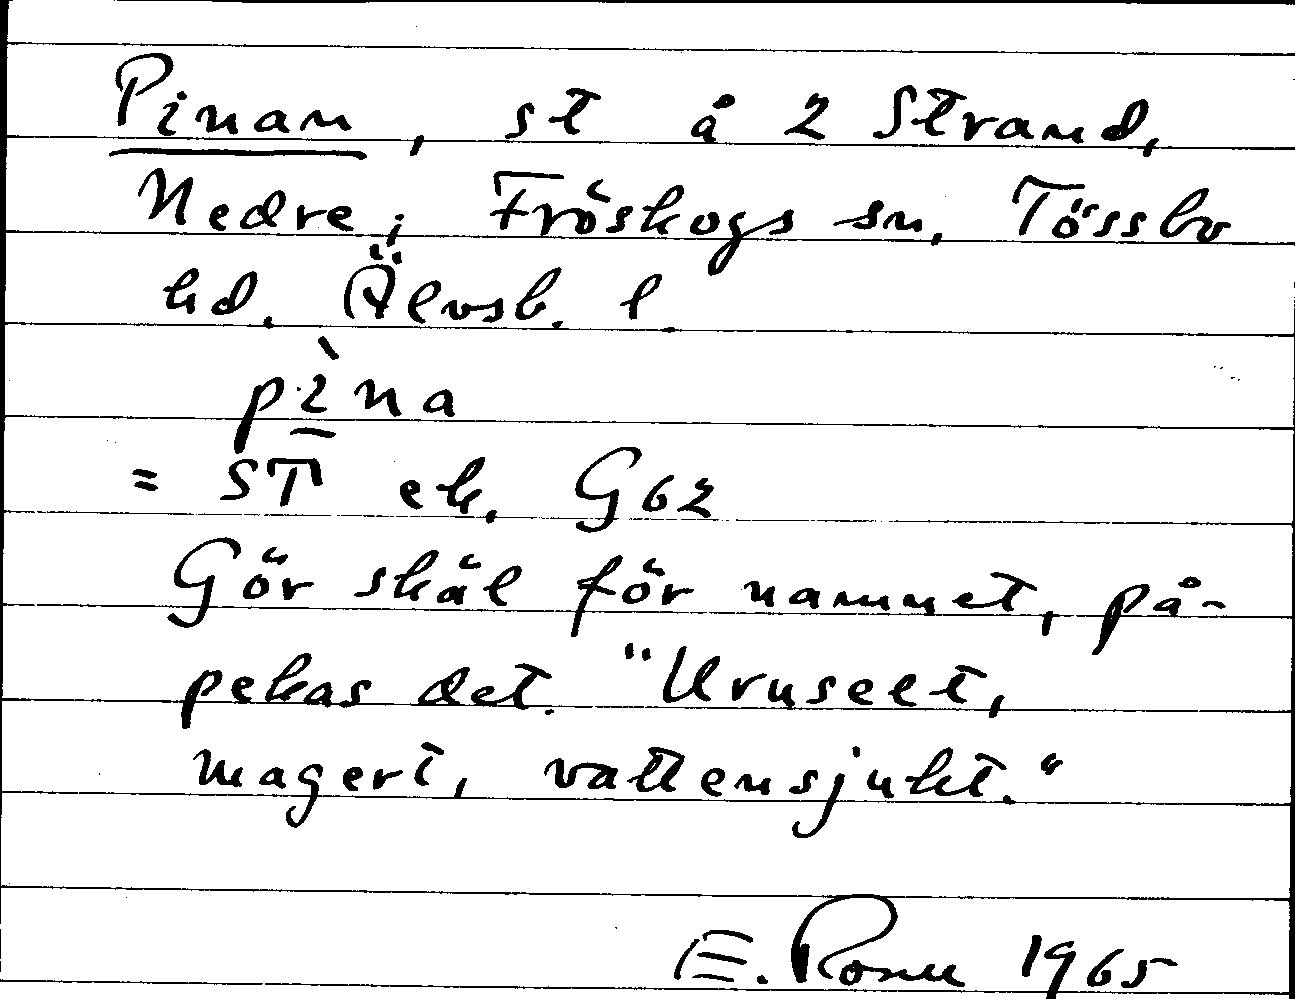 Pinan, st å 2 Strand,
Nedre; Fröskogs sn, Tössbo
hd. Älvsb. l.
pìna
= ST ek. G62
Gör skäl för namnet, på-
pekas det. "Uruselt,
magert, vattensjukt."
E. Ronn 1965